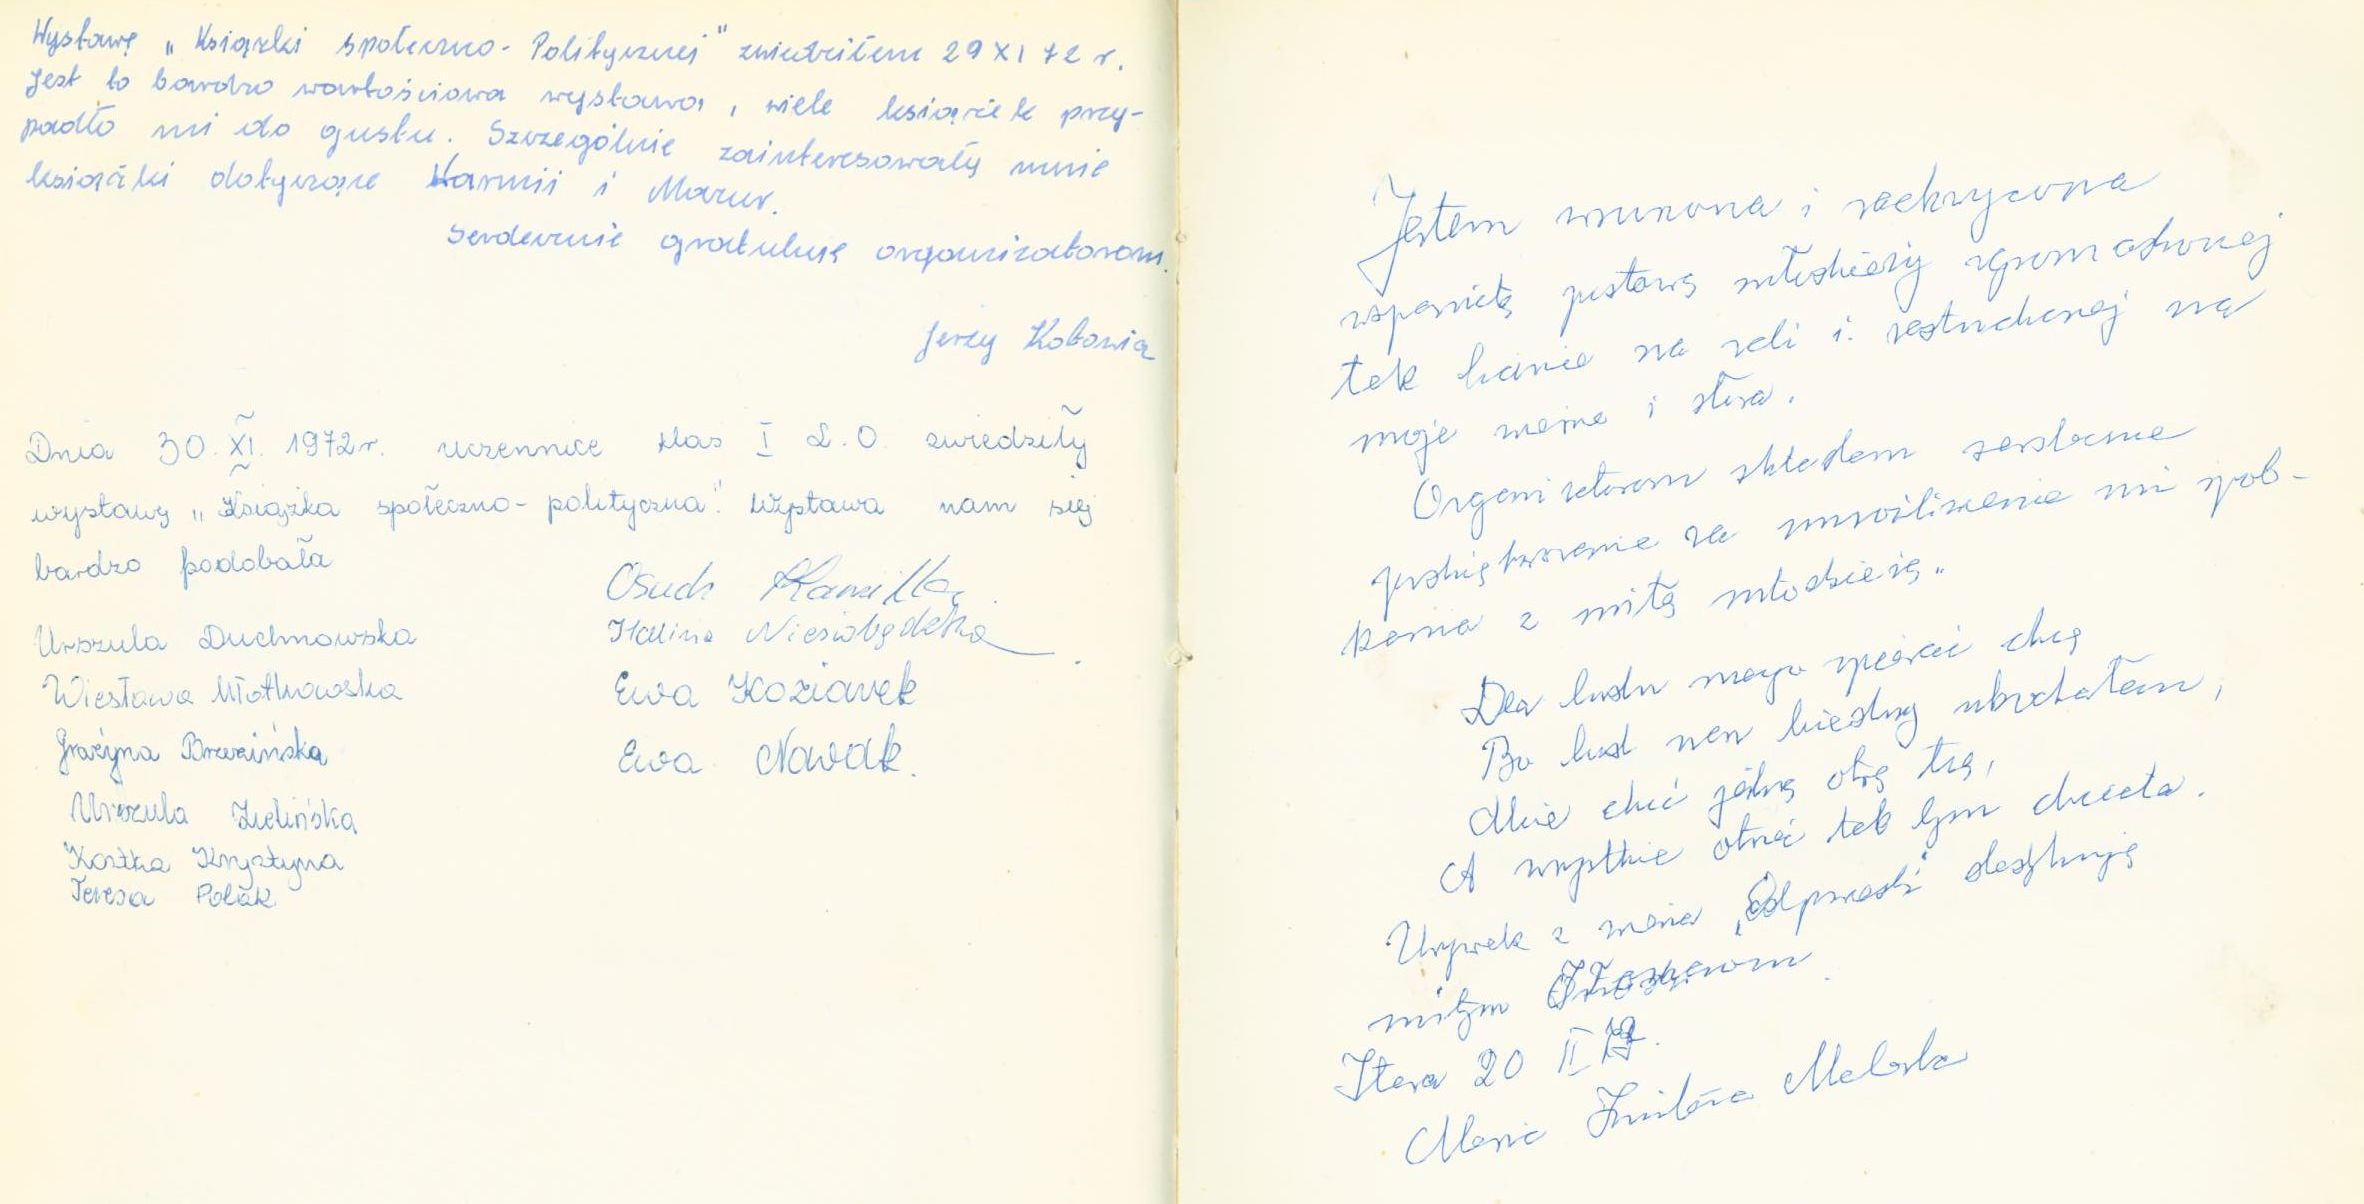 Wystawę „Książki społeczno-Politycznej" zwiedziłem 29 XI 72 r.
Jest to bardzo wartościowa wystawa, wiele książek przy-
padło mi do gustu. Szczególnie zainteresowały mnie
książki dotyczące Warmii i Mazur.
Serdecznie gratuluję organizatorom.
Jerzy
Dnia 30. XI. 1972 r. uczennice klas I L.O. zwiedziły
wystawę „Książka społeczno-polityczna". Wystawa nam się
bardzo podobała
Osuch Kamilla
Urszula Duchnowska
Halina
Wiesława Młotkowska
Ewa Koziarek
Grażyna Brzezińska
Ewa Nowak.
Urszula Zielińska
Kostka Krystyna
Teresa Polak
Jestem wzruszona i zachwycona
wspaniałą postawą młodzieży zgromadzonej
tak licznie na sali i zasłuchanej na
moje wiersze i słowa.
Organizatorom składam serdeczne
podziękowanie za umożliwienie mi spot-
kania z miłą młodzieżą.
Dla ludu mego śpiewać chcę
Bo lud ten biedny ukochałam,
Mnie choć jedną otrę łzę,
A wszystkie otrzeć tak bym chciała.
Urywek z wiersza „Odpowiedź" dedykuję
miłym
20 II
Maria Zientara Malewska